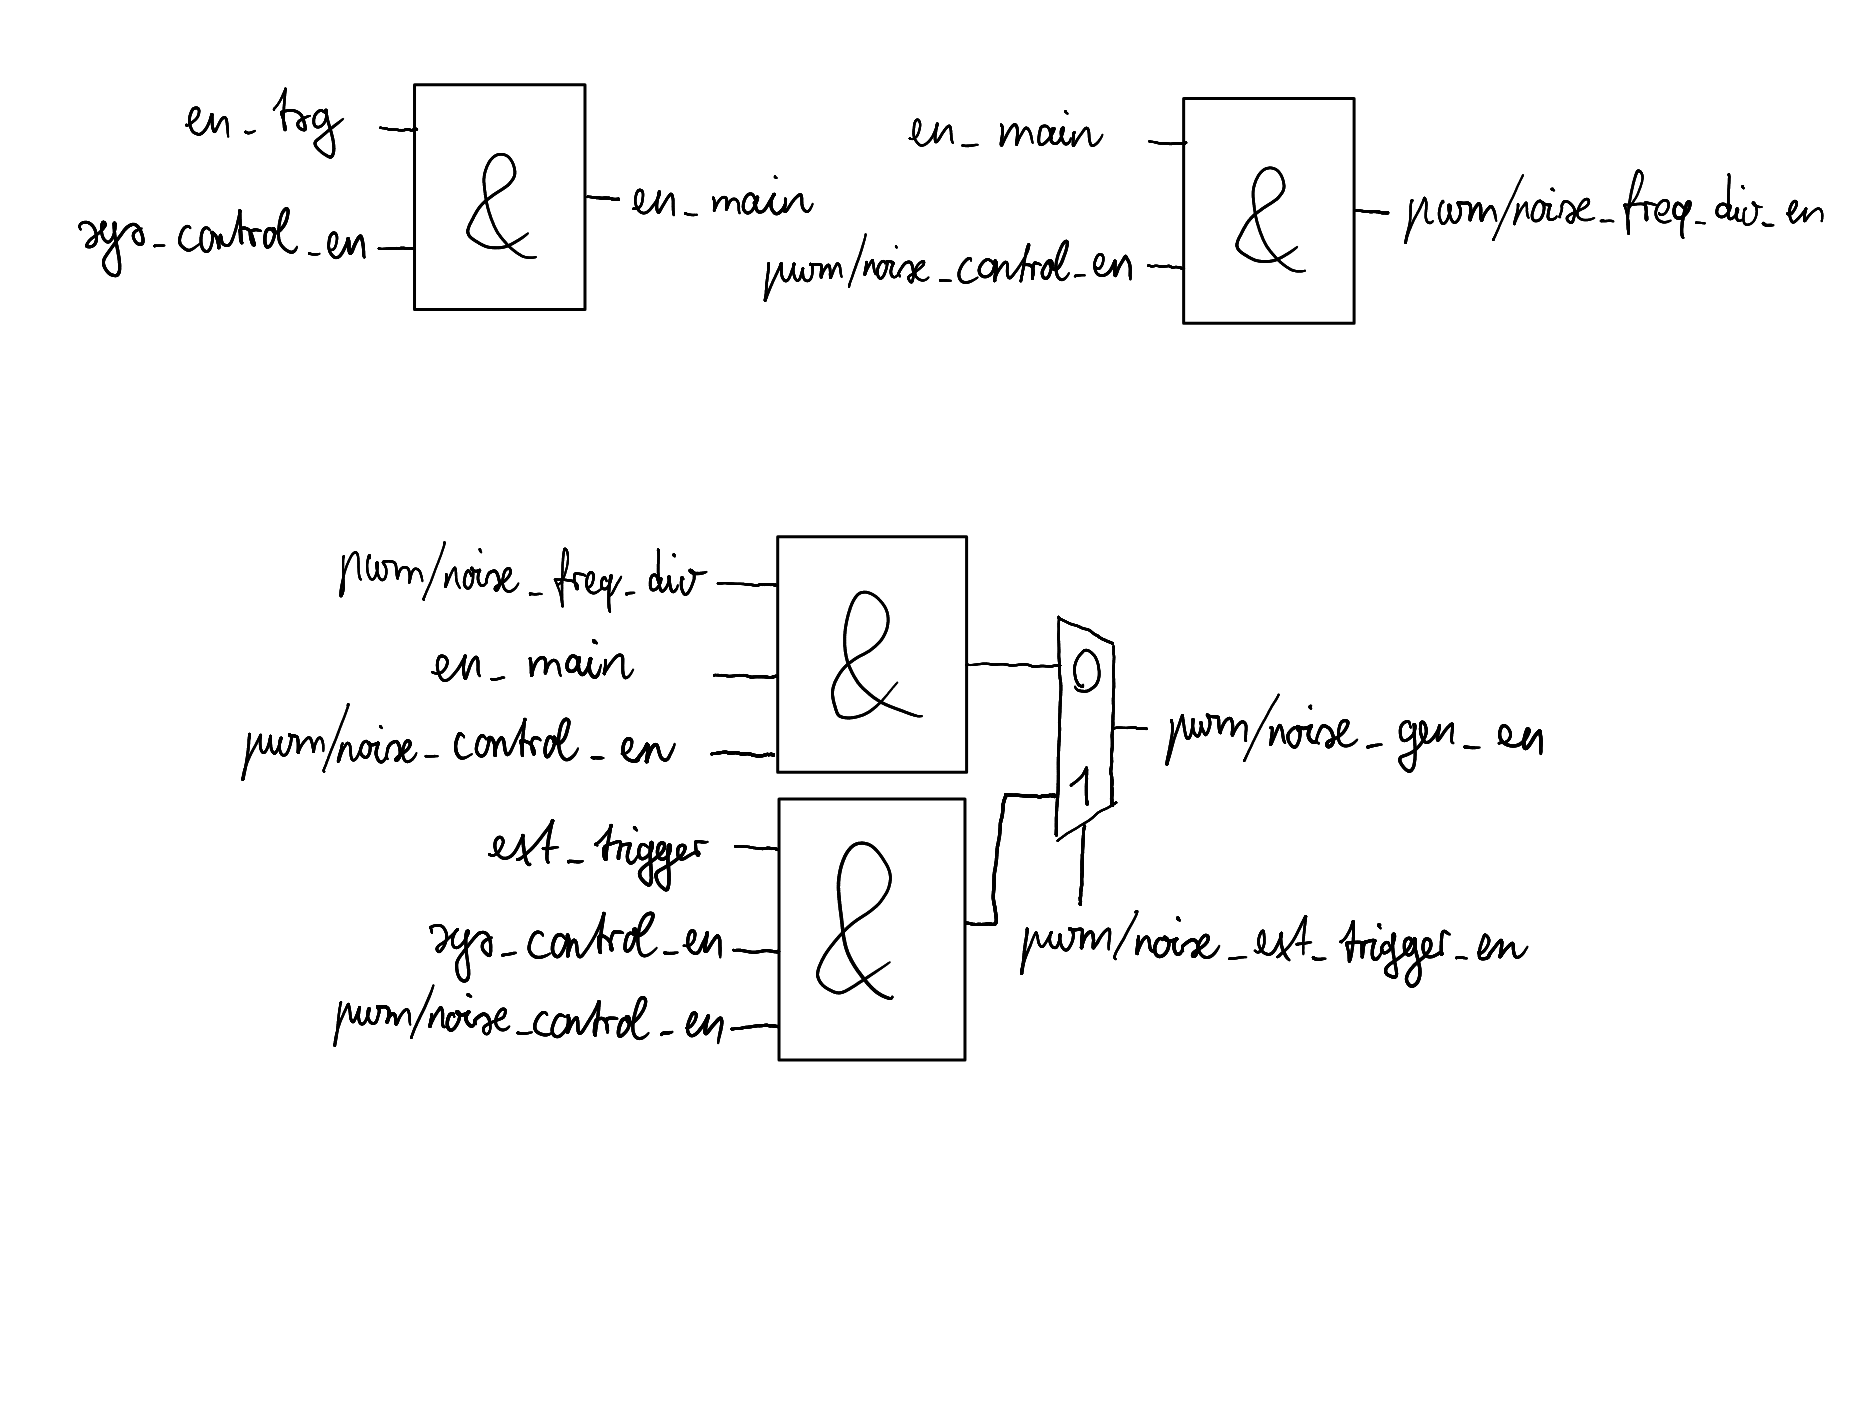 en_trg
sys_control_en
&
en_main
en_main
pwm/noise_control_en
&
pwm/noise_freq_div_en
pwm/noise_freq_div
en_main
pwm/noise_control_en
&
ext_trigger
sys_control_en
pwm/noise_control_en
&
0
1
pwm/noise_gen_en
pwm/noise_ext_trigger_en